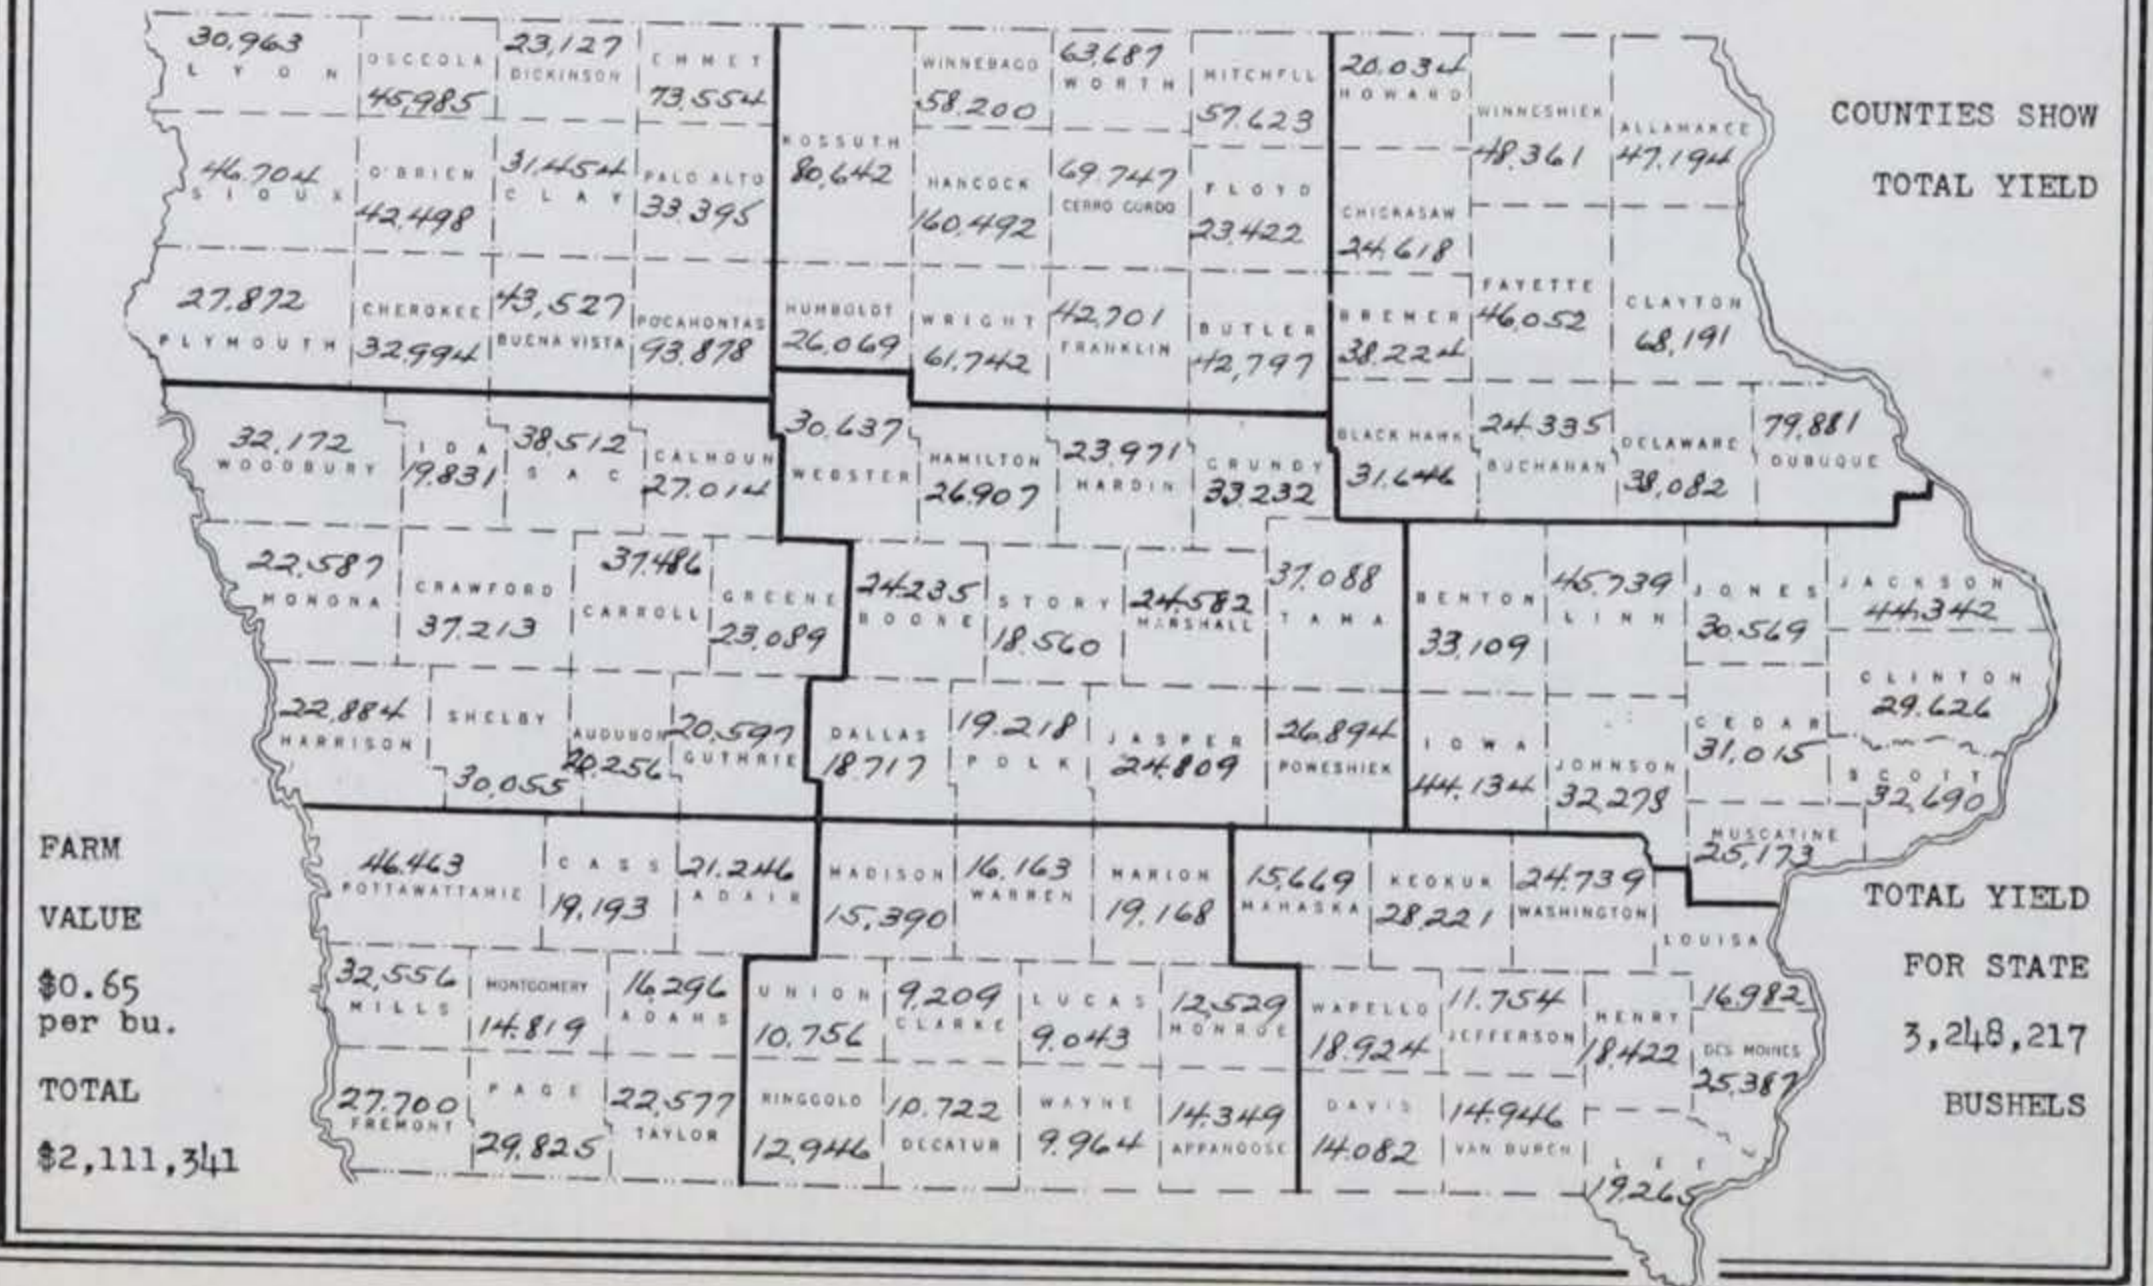 30,963
LYON
OSCEOLA
45,985
23,127
DICKINSON
EMMET
73,554
WINNEBAGO
58.200
63,687
WORTH
MITCHELL
57.623
20.034
HOWARD
WINNESHIEK
48.361
ALLAMAKEE
47.194
COUNTIES SHOW
TOTAL YIELD
46.704
SIOUX
O'BRIEN
42,498
31,454
CLAY
PALO ALTO
33.395
KOSSUTH
80,642
HANCOCK
160,492
69.747
CERRO GORDO
FLOYD
23,422
CHICKASAW
24,618
27,872
PLYMOUTH
CHEROKEE
32,994
43,527
BUENA VISTA
POCAHONTAS
93,878
HUMBOLDT
26,069
WRIGHT
61,742
42,701
FRANKLIN
BUTLER
42,797
BREMER
38.224
FAYETTE
46,052
CLAYTON
68,191
32,172
WOODBURY
IDA
19.831
38,512
SAC
CALHOUN
27.014
30,637
WEBSTER
HAMILTON
26.907
23,971
HARDIN
GRUNDY
33,232
BLACK HAWK
31.646
24.335
BUCHANAN
DELAWARE
38,082
79,881
DUBUQUE
22,587
MONONA
CRAWFORD
37.213
37.486
CARROLL
GREENE
23,089
24.235
BOONE
STORY
18.560
24.582
MARSHALL
37.088
TAMA
BENTON
33,109
45.739
LINN
JONES
30.569
JACKSON
44,342
CLINTON
29.626
22,884
HARRISON
SHELBY
30,055
AUDUBON
20,256
20,597
GUTHRIE
DALLAS
18.717
19.218
POLK
JASPER
24.809
26,894
POWESHIEK
IOWA
44.134
JOHNSON
32,278
CEDAR
31,015
SCOTT
32,690
MUSCATINE
25,173
FARM
VALUE
$0.65
per bu.
TOTAL
$2,111,341
46.463
POTTAWATTAMIE
CASS
19,193
21.246
ADAIR
MADISON
15,390
16.163
WARREN
MARION
19,168
15,669
MAHASKA
KEOKUK
28,221
24.739
WASHINGTON
LOUISA
16,982
32,556
MILLS
MONTGOMERY
14.819
16,296
ADAMS
UNION
10,756
9,209
CLARKE
LUCAS
9.043
12,529
MONROE
WAPELLO
18.924
11.754
JEFFERSON
HENRY
18,422
DES MOINES
25,387
27.700
FREMONT
PAGE
29,825
22,577
TAYLOR
RINGGOLD
12,946
10.722
DECATUR
WAYNE
9.964
14.349
APPANOOSE
DAVIS
14.082
14.946
VAN BUREN
LEE
19,265
TOTAL YIELD
FOR STATE
3,248,217
BUSHELS